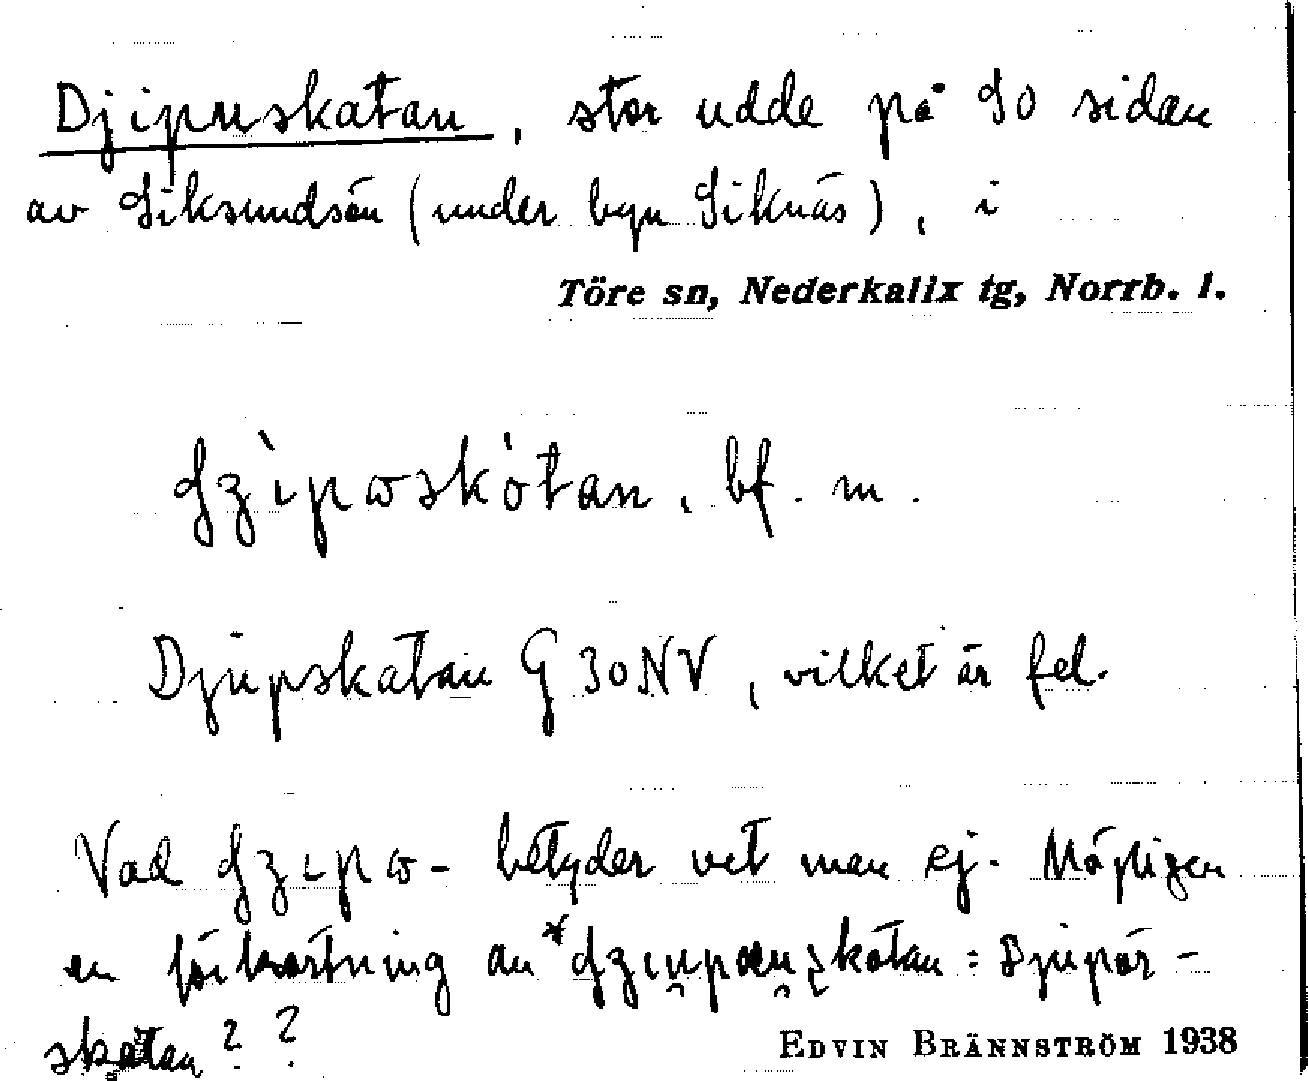 Djipuskatan, stor udde på SO sidan
av Siksundsön (under byn Siknäs), i
Töre sn, Nederkalix tg, Norrb. l.
bf. m.
Djupskatan G 30 NV, vilket är fel.
Vad betyder vet man ej. Möjligen
en förkortning av = Djupör-
skatan??
EDVIN BRÄNNSTRÖM 1938